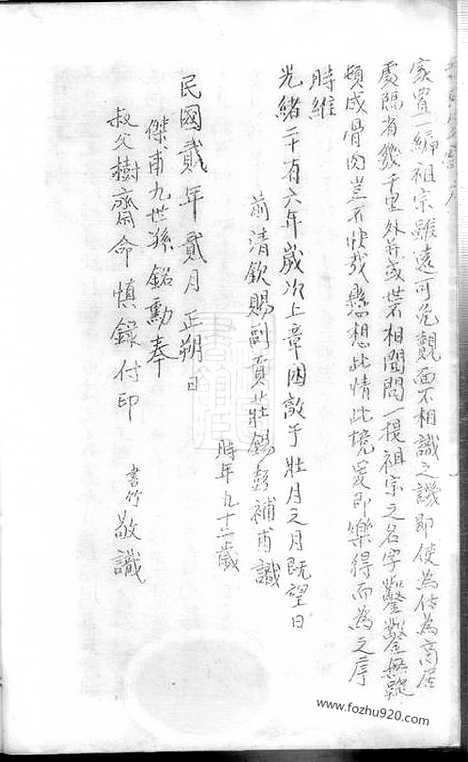 家置一編祖宗雖遠可免覿面不相識之譏即使為仕為商居
處隔省幾千里外並或世不相聞問一提祖宗之名字鑿鑿無疑
頓成骨肉豈不快哉懸想此情此境爰即樂得而為之序
時維
光緒二十有六年歲次上章困敦于壯月之月既望日
前清欽賜副貢莊錫彭補甫識
時年九十一歲
民國貳年貳月正朔日
傑甫九世孫銘勳奉
叔父樹齋命慎錄付印
書竹敬識
www.fozhu920.com